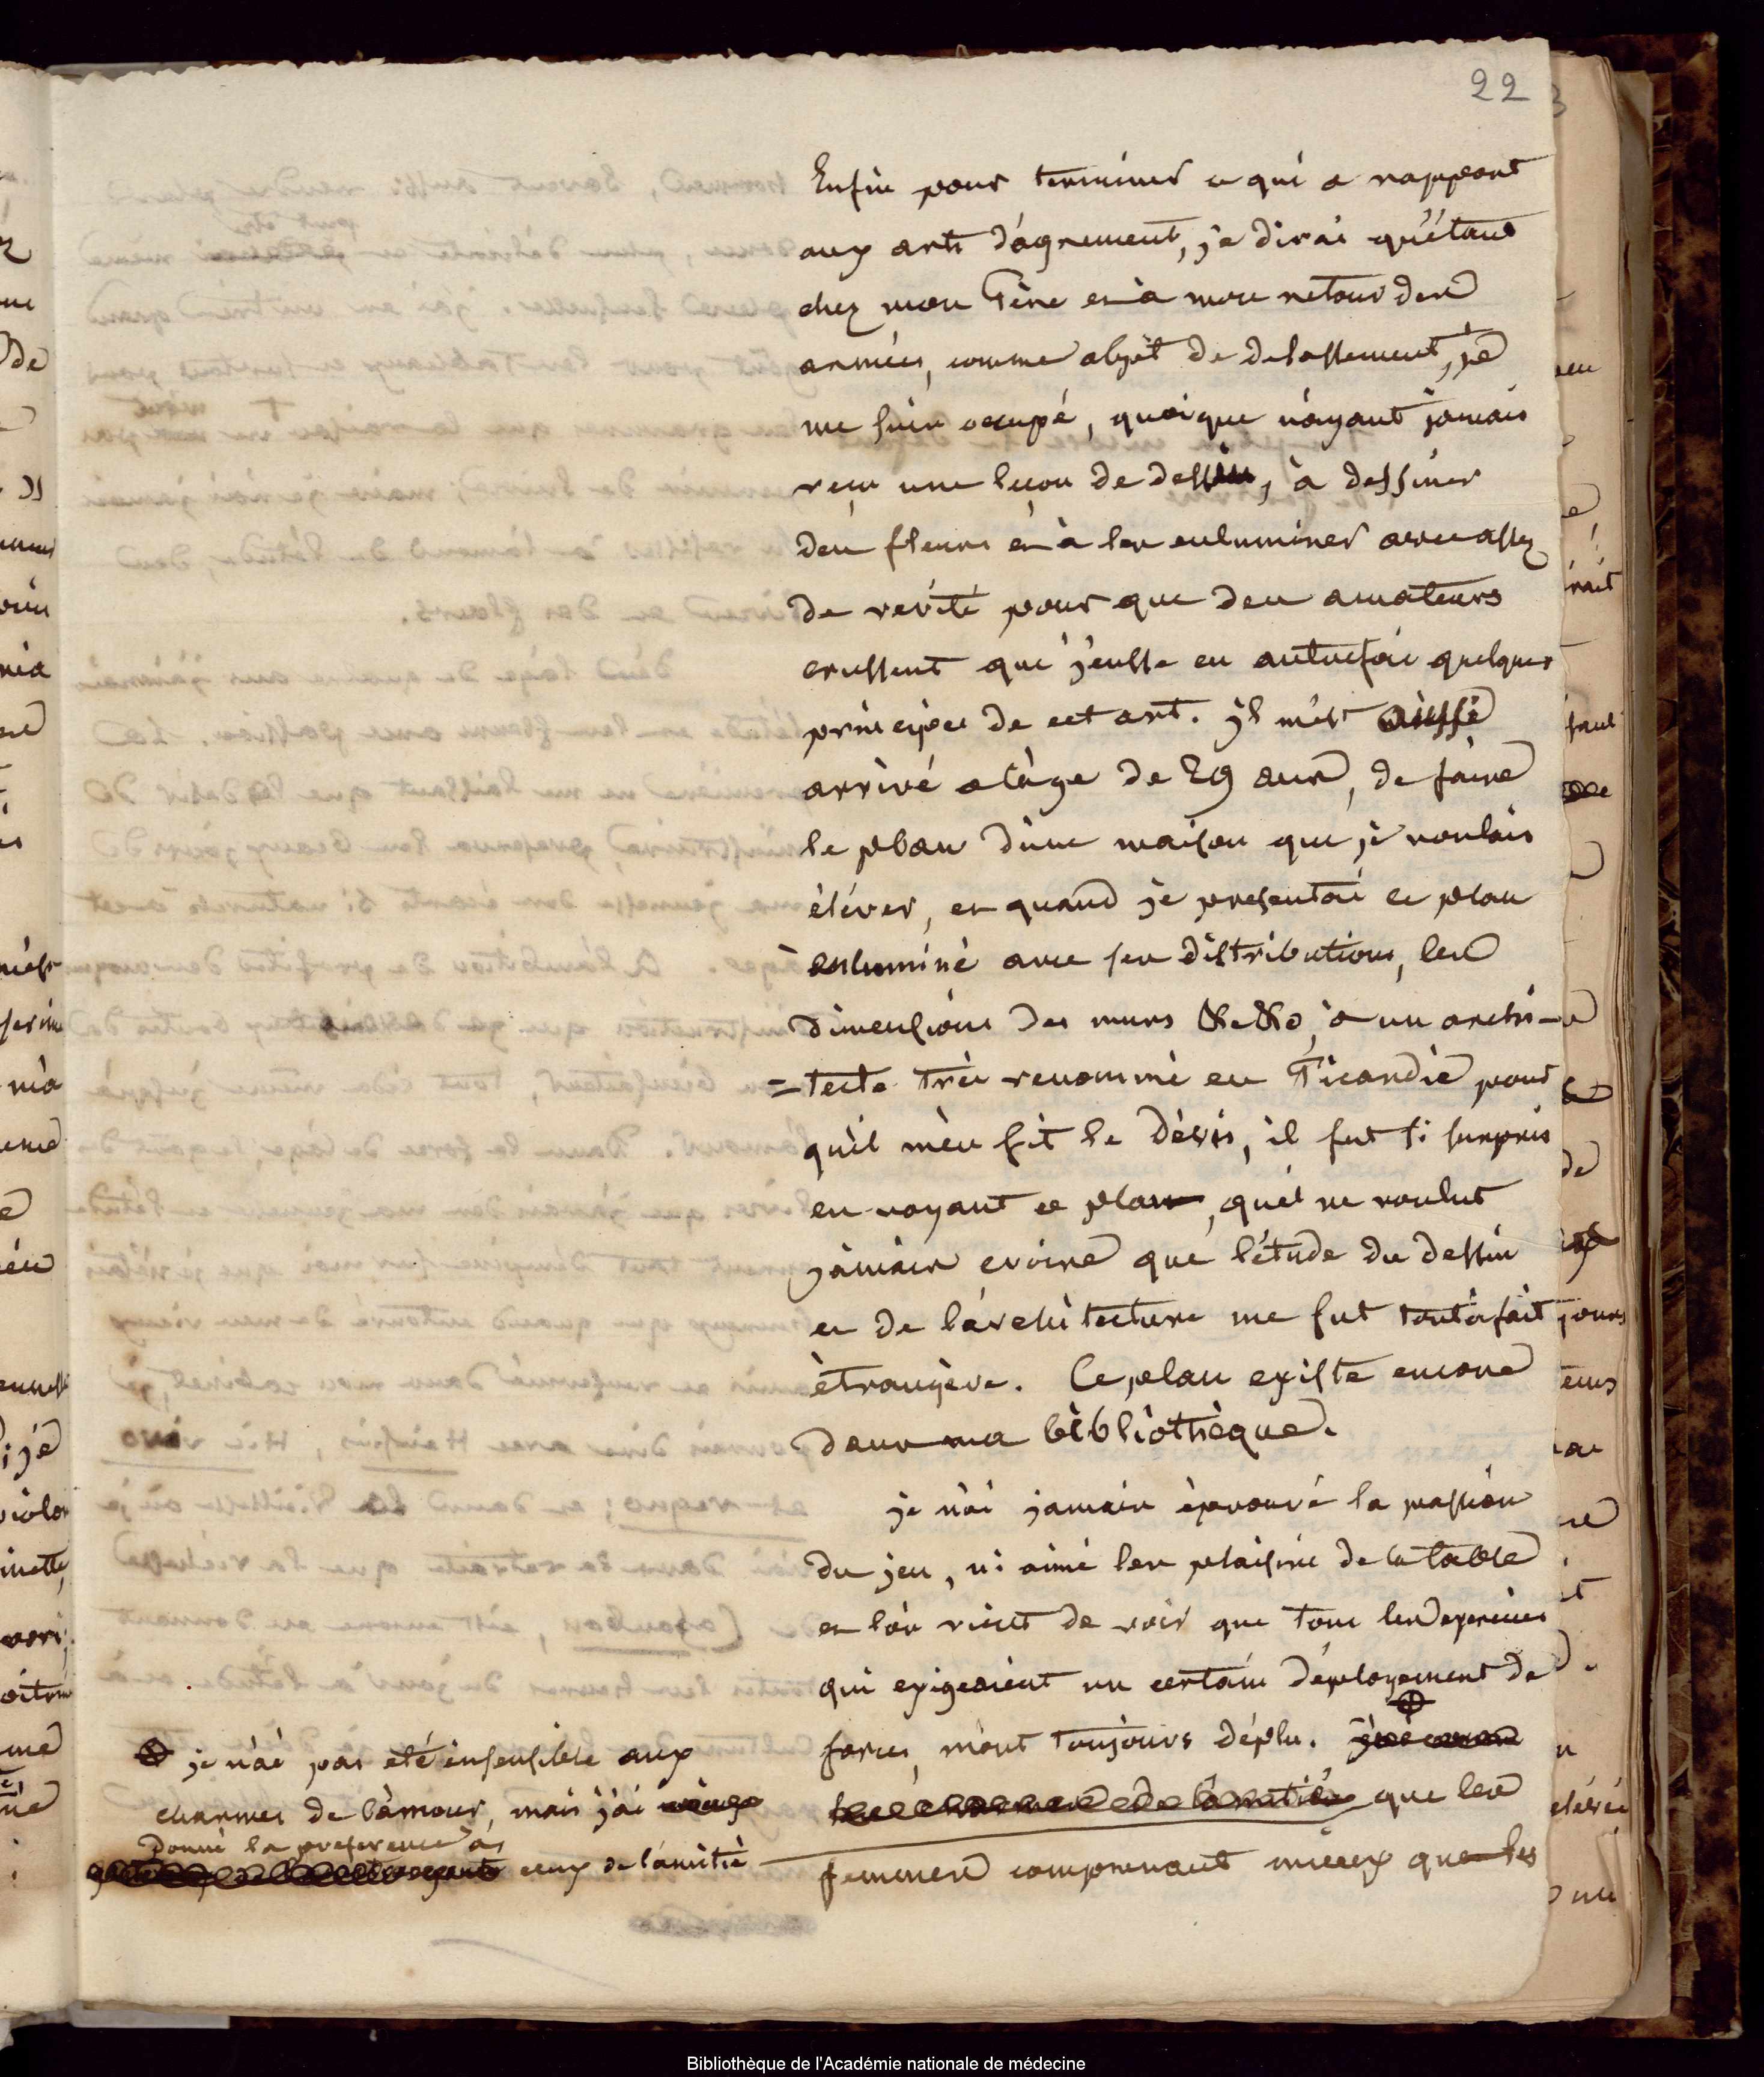 22
Enfin pour terminer ce qui a rapport
aux arts d'agrement, je dirai qu'étant
chez mon Père et à mon retour des
armées, comme objèt de delassement, je
me suis occupé, quoique n'ayant jamais
reçu une leçon de dessin, à dessiner
des fleurs et à les enluminer avec assez
de verité pour que des amateurs
crussent que j'eusse eu autrefois quelques
principes de cet art. il m'est aussi
arrivé a l'àge de 29 ans, de faire
le plan d'une maison que je voulais
éléver, et quand je presentai ce plan
enluminé avec ses distributions, les
dimensions des murs &c &c, à un archi-
=tecte très renommé en Picardie pour
qu'il m'en fit le dévis, il fut si surpris
en voyant ce plan, qu'il ne voulut
jamais croire que l'étude du dessin
et de l'architecture me fut toutàfait
ètrangère. Ce plan existe encore
dans ma bibliothèque.
je n'ai jamais èprouvé la passion
du jeu, ni aimé les plaisirs de la table
et l'on vient de voir que tous les exercices
qui exigeaient un certain déployement de
forces, m'ont toujours déplu.
que les
femmes comprenant mieux que les
je n'ai pas eté insensible aux
charmes de l'amour, mais j'ai
donné la preference à
ceux de l'amitié
Bibliothèque de l'Académie nationale de médecine